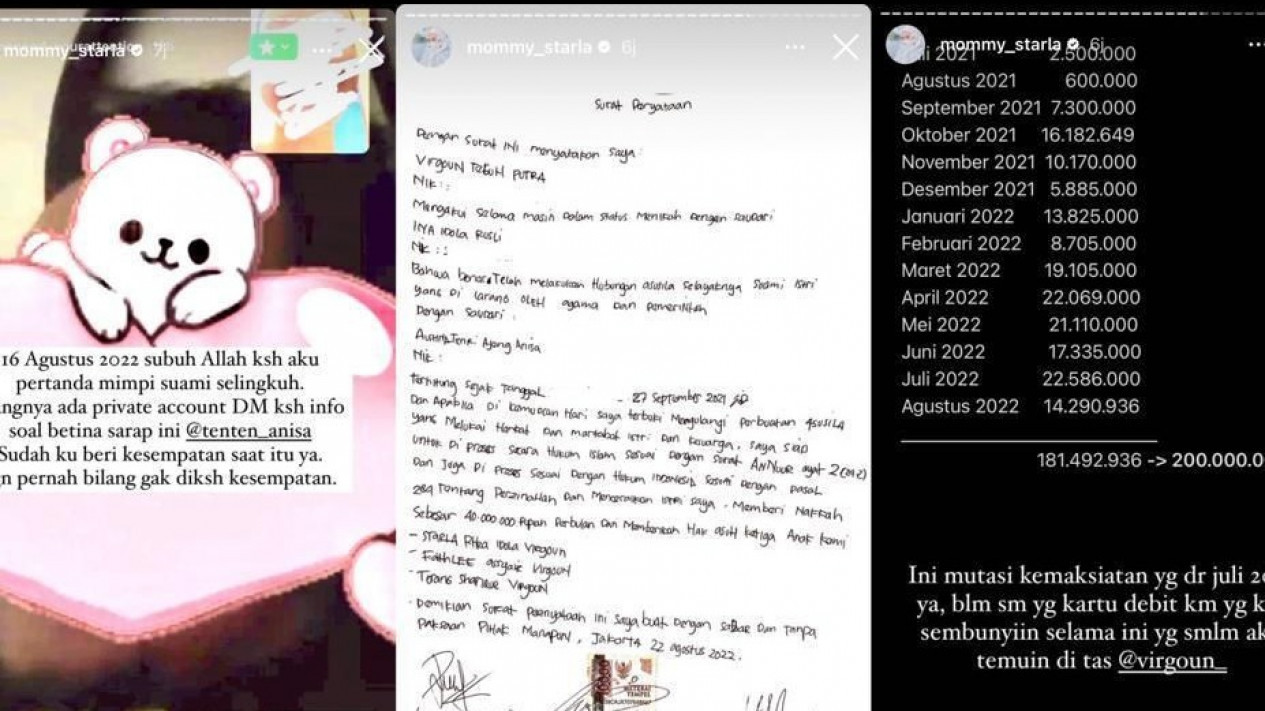 mommy_starla 7j
16 Agustus 2022 subuh Allah ksh aku
pertanda mimpi suami selingkuh.
ngnya ada private account DM ksh info
soal betina sarap ini @tenten_anisa
Sudah ku beri kesempatan saat itu ya.
n pernah bilang gak diksh kesempatan.
mommy_starla 6j
Surat Pernyataan
Dengan Surat INI menyatakan Saya :
VIRGOUN TEGUH PUTRA
NIK : :
Mengakui Selama masih Dalam Status Menikah Dengan Saudari
INA IDOLA RUSLI
NIK : :
Bahwa benar Telah melakukan Hubungan asusila Selayaknya Suami Istri
yang Di larang oleh agama dan pemerintah
Dengan Saudari :
Ajeng Anisa
NIK :
Terhitung Sejak Tanggal - 27 September 2021
Dan Apabila Di kemudian Hari Saya terbukti Mengulangi Perbuatan ASUSILA
yang Melukai Harkat Dan martabat istri Dan keluarga, Saya Siap
untuk Di Proses Secara Hukum Islam Sesuai Dengan Surat ANNuur ayat 2
Dan Juga Di Proses Sesuai Dengan Hukum Indonesia Sesuai Dengan Pasal
284 Tentang Perzinahan Dan Menceraikan istri saya . Memberi Nafkah
Sebesar 40.000.000 Rupiah Perbulan Dan Memberikan Hak asuh ketiga Anak kami
- STARLA Idola Virgoun
- Virgoun
- Virgoun
Demikian Surat Pernyataan ini Saya buat Dengan Sadar Dan Tanpa
Paksaan Pihak Manapun, Jakarta 22 agustus 2022.
METERAI
TEMPEL
mommy_starla 6j
li 2021 2.500.000
Agustus 2021 600.000
September 2021 7.300.000
Oktober 2021 16.182.649
November 2021 10.170.000
Desember 2021 5.885.000
Januari 2022 13.825.000
Februari 2022 8.705.000
Maret 2022 19.105.000
April 2022 22.069.000
Mei 2022 21.110.000
Juni 2022 17.335.000
Juli 2022 22.586.000
Agustus 2022 14.290.936
181.492.936 -> 200.000.0
Ini mutasi kemaksiatan yg dr juli 2
ya, blm sm yg kartu debit km yg k
sembunyiin selama ini yg smlm ak
temuin di tas @virgoun_